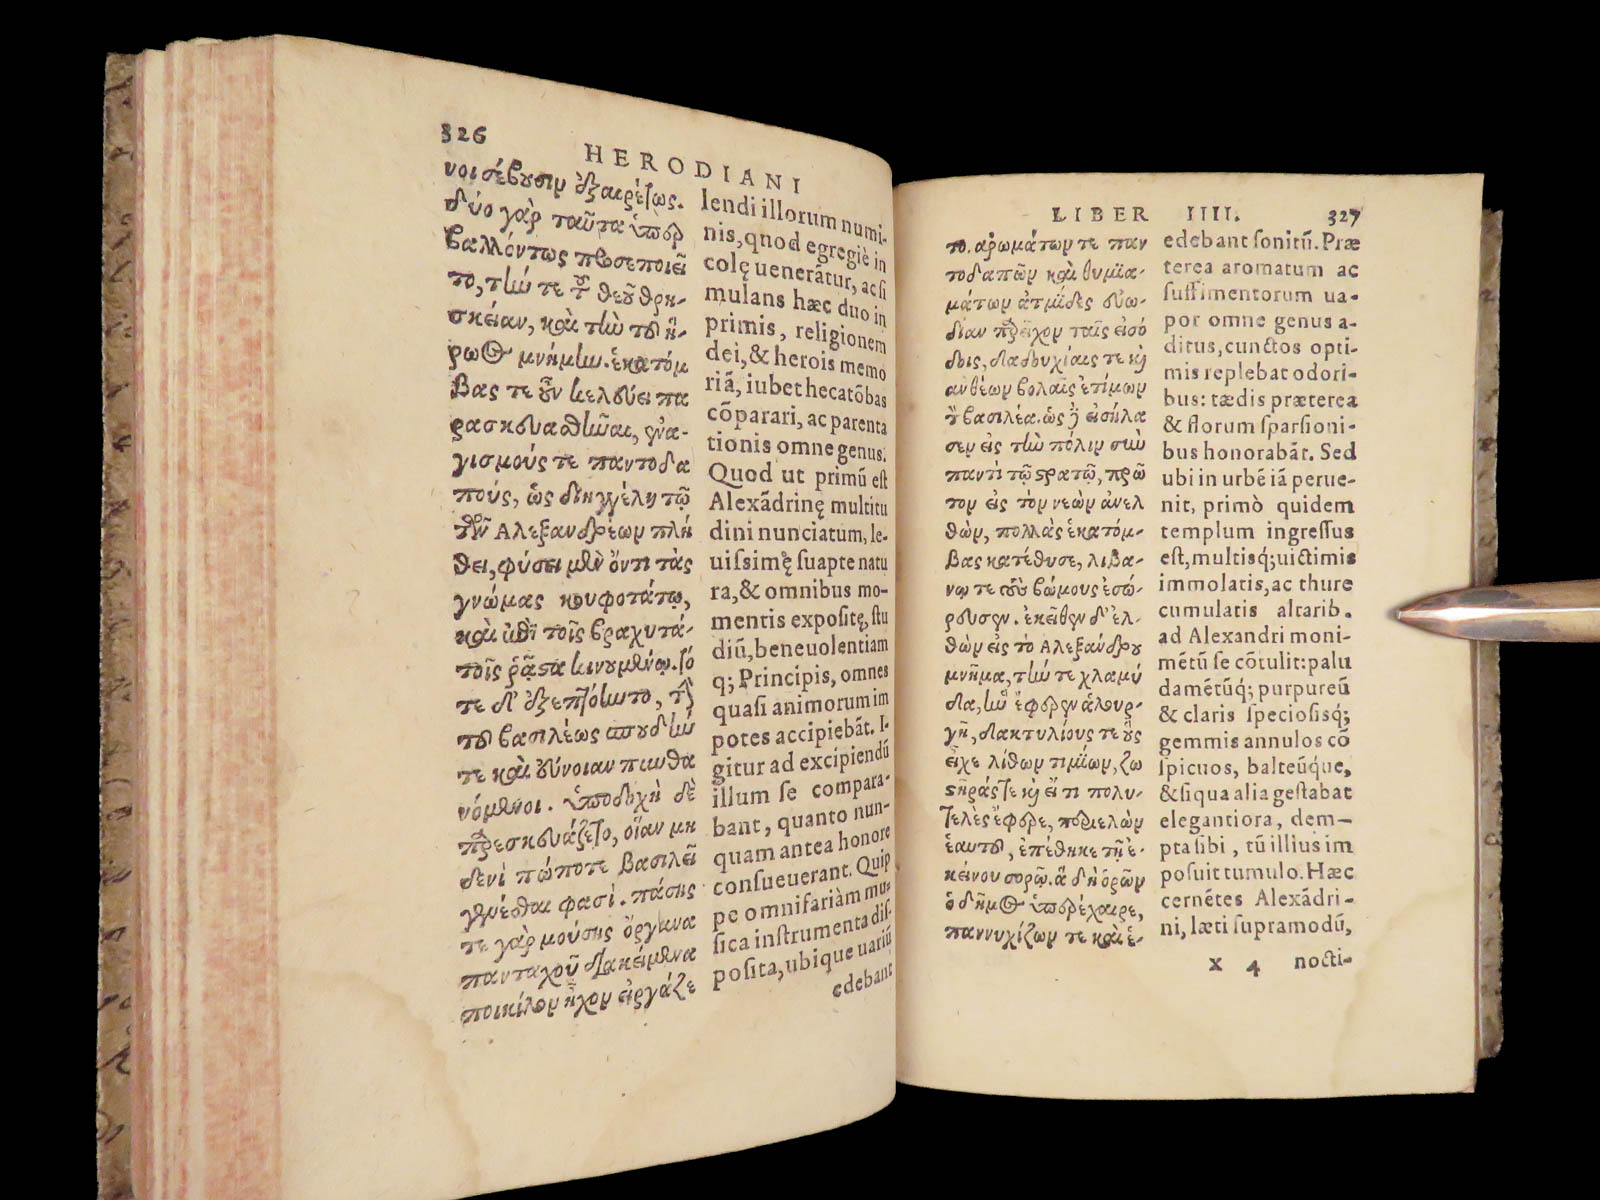 326
HERODIANI
νοι σέβουσιν ἐξαιρέτως.
δύο γὰρ ταῦτα ὑπερ
βαλλόντως προσεποιεῖ
το, τήν τε τοῦ θεοῦ θρη-
σκείαν, καὶ τὴν τοῦ ἥ-
ρωος μνήμην. ἑκατόμ
βας τε οὖν κελεύει πα
ρασκευασθῆναι, ἐνα-
γισμούς τε παντοδα
πούς, ὡς διηγγέλη τῷ
τῶν Αλεξανδρέων πλή
θει, φύσει μὲν ὄντι τὰς
γνώμας κουφοτάτῳ,
καὶ ἐπὶ τοῖς βραχυτά-
τοις ῥᾷστα κινουμένῳ. τό
τε δ' ἐξεπτόηντο, τὴν
τοῦ βασιλέως σπουδὴν
τε καὶ εὔνοιαν πυνθα
νόμενοι. ὑποδοχὴ δὲ
παρεσκευάζετο, οἵαν μη
δενὶ πώποτε βασιλεῖ
γενέσθαι φασί. πάσης
τε γὰρ μούσης ὄργανα
πανταχοῦ διακείμενα
ποικίλον ἦχον εἰργάζε
lendi illorum numi-
nis, quod egregiè in
colę uenerãtur, ac si
mulans hæc duo in
primis, religionem
dei, & herois memo
riã, iubet hecatõbas
cõparari, ac parenta
tionis omne genus.
Quod ut primũ est
Alexãdrinę multitu
dini nunciatum, le-
uissimę suapte natu
ra, & omnibus mo-
mentis expositę, stu
diũ, beneuolentiam
q; Principis, omnes
quasi animorum im
potes accipiebãt. I-
gitur ad excipiendũ
illum se compara-
bant, quanto nun-
quam antea honore
consueuerant. Quip
pe omnifariàm mu-
sica instrumenta dis-
posita, ubique uariũ
edebant
LIBER IIII.
327
το. ἀρωμάτων τε παν
τοδαπῶν καὶ θυμια-
μάτων ἀτμίδες εὐω-
δίαν παρεῖχον ταῖς εἰσό
δοις, δᾳδουχίαις τε καὶ
ἀνθέων βολαῖς ἐτίμων
τὸν βασιλέα. ὡς δὲ εἰσήλα
σεν εἰς τὴν πόλιν σὺν
παντὶ τῷ στρατῷ, πρῶ
τον εἰς τὸν νεὼν ἀνελ
θὼν, πολλὰς ἑκατόμ-
βας κατέθυσε, λιβα-
νῳ τε τοὺς βώμους ἐσώ-
ρευσεν. ἐκεῖθεν δ' ἐλ-
θὼν εἰς τὸ Αλεξάνδρου
μνῆμα, τήν τε χλαμύ
δα, ἣν ἔφερεν ἁλουρ-
γῆ, δακτυλίους τε οὓς
εἶχε λίθων τιμίων, ζω
στῆράς τε καὶ εἴ τι πολυ-
τελὲς ἔφερε, περιελὼν
ἑαυτοῦ, ἐπέθηκε τῇ ἐ-
κείνου σορῷ. ἃ δὴ ὁρῶν
ὁ δῆμος ὑπερέχαιρε,
παννυχίζων τε καὶ ἑ-
edebant sonitũ. Præ
terea aromatum ac
suffimentorum ua-
por omne genus a-
ditus, cunctos opti-
mis replebat odori-
bus: tædis præterea
& florum sparsioni-
bus honorabãt. Sed
ubi in urbẽ iã perue-
nit, primò quidem
templum ingressus
est, multisq; uictimis
immolatis, ac thure
cumulatis altarib.
ad Alexandri moni-
mẽtũ se cõtulit: palu
damẽtũq; purpureũ
& claris speciosisq;
gemmis annulos cõ
spicuos, balteũque,
& siqua alia gestabat
elegantiora, dem—
pta sibi, tũ illius im
posuit tumulo. Hæc
cernẽtes Alexãdri-
ni, læti supramodũ,
x 4 nocti-